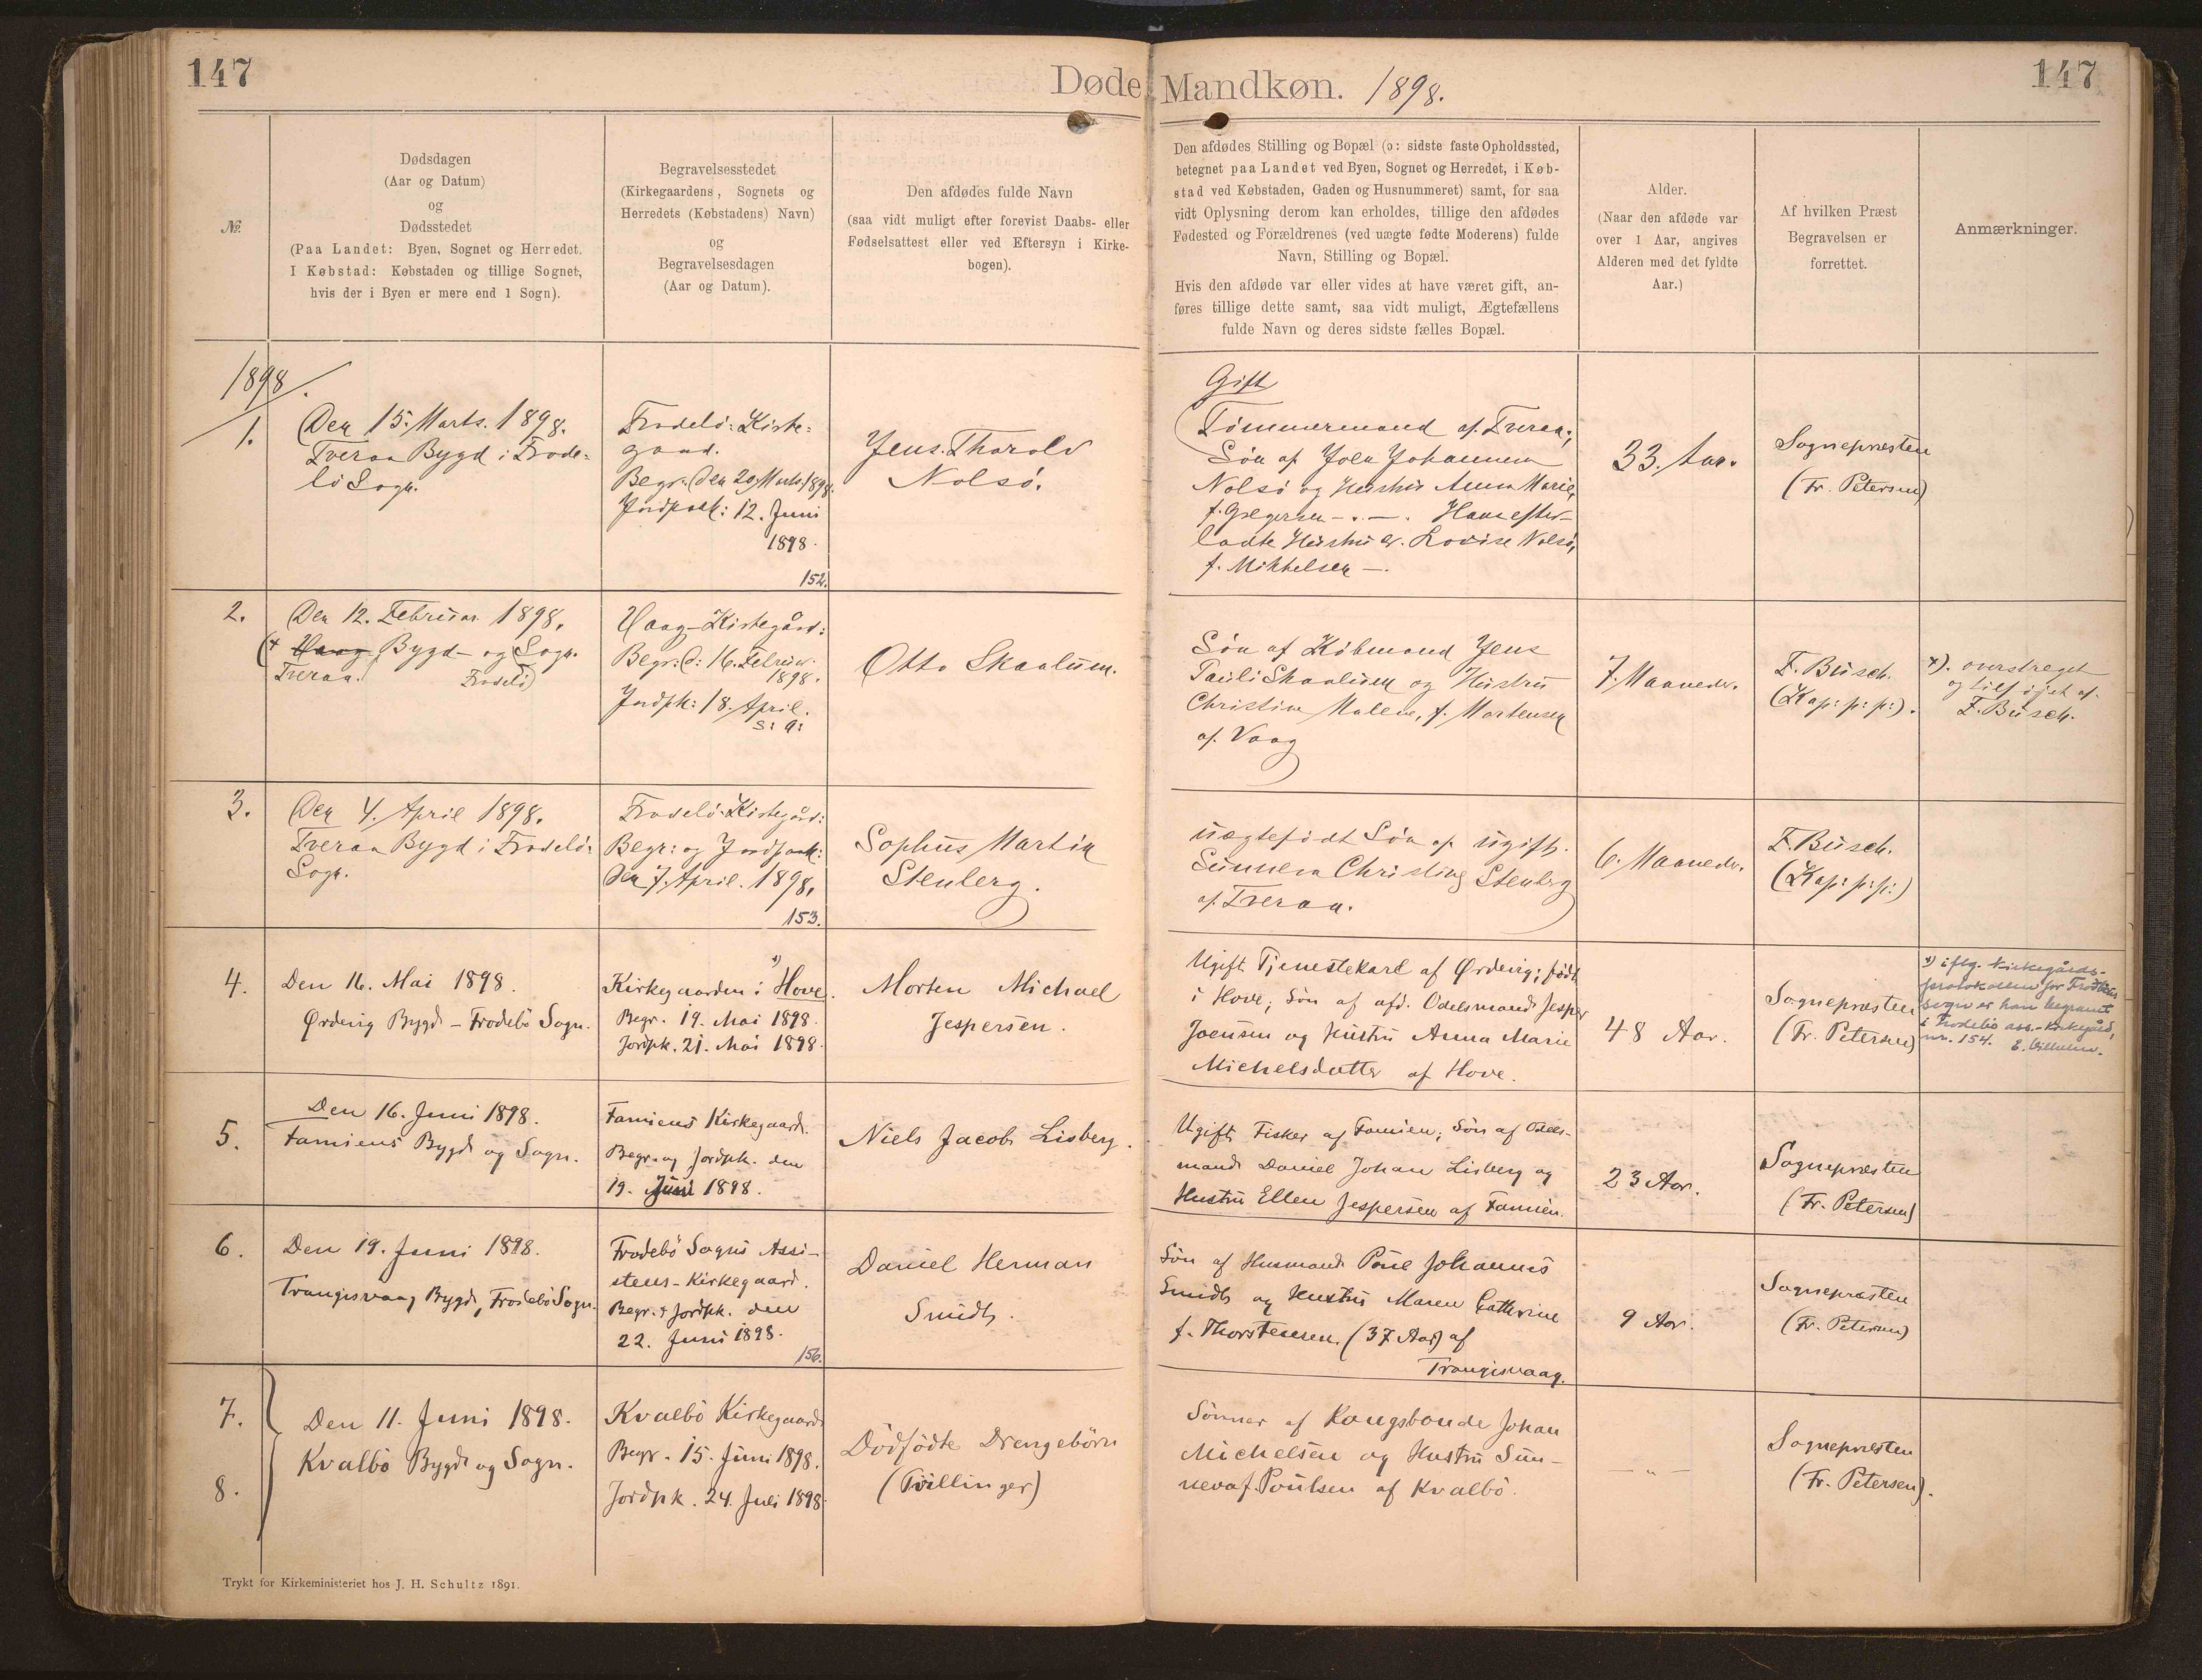 147
Døde Mandkøn. 1898.
147
№
Dødsdagen
(Aar og Datum)
og
Dødsstedet
(Paa Landet: Byen, Sognet og Herredet.
I Købstad: Købstaden og tillige Sognet,
hvis der i Byen er mere end 1 Sogn).
Begravelsesstedet
(Kirkegaardens, Sognets og
Herredets (Købstadens) Navn)
og
Begravelsesdagen
(Aar og Datum).
Den afdødes fulde Navn
(saa vidt muligt efter forevist Daabs- eller
Fødselsattest eller ved Eftersyn i Kirke-
bogen).
Den afdødes Stilling og Bopæl (ɔ: sidste faste Opholdssted,
betegnet paa Landet ved Byen, Sognet og Herredet, i Køb-
stad ved Købstaden, Gaden og Husnummeret) samt, for saa
vidt Oplysning derom kan erholdes, tillige den afdødes
Fødested og Forældrenes (ved uægte fødte Moderens) fulde
Navn, Stilling og Bopæl.
Hvis den afdøde var eller vides at have været gift, an-
føres tillige dette samt, saa vidt muligt, Ægtefællens
fulde Navn og deres sidste fælles Bopæl.
Alder.
(Naar den afdøde var
over 1 Aar, angives
Alderen med det fyldte
Aar.)
Af hvilken Præst
Begravelsen er
forrettet.
Anmærkninger.
1898.
1.
Den 15. Marts. 1898.
Tveraa Bygd i Frode=
bö Sogn.
Frodebö: Kirke=
gaard.
Begr: Den 20 Marts 1898.
Jordpaak: 12. Juni
1898.
152.
Jens. Tharold
Nolsö.
Gift
Tömmermand af Tveraa;
Søn af Joen Johannesen
Nolsö og Hustru Anna Marie,
f. Gregersen -.-. Han efter-
ladte Hustru Lovise Nolsö,
f. Mikkelsen -.
33. Aar.
Sognepræsten
(Fr. Petersen)
2.
Den 12. Februar 1898.
(x Vaag Bygd- og Sogn.
Tveraa. Frodebö)
Vaag-Kirkegård:
Begr: d: 16. Februar
1898.
Jordpk: 18. April.
s: a:
Otto Skaalum.
Søn af Köbmand Jens
Pauli Skaalum og Hustru
Christine Malene, f. Mortensen
af. Vaag
7. Maaneder.
F. Büsch.
(Kap: p: p:).
x). overstreget
og tilføjet af.
F. Büsch.
3.
Den 4. April 1898.
Tveraa Bygd i Frodebö:
Sogn.
Frodebö-Kirkegård:
Begr: og Jordpaak:
Den 7. April. 1898.
153.
Sophus Martin
Stenberg.
uægtefödt Søn af ugift.
Sunneva Christine Stenberg
af. Tveraa.
6. Maaneder.
F. Büsch.
(Kap: p: p:)
4.
Den 16. Mai 1898.
Ørdevig Bygd - Frodebö Sogn.
Kirkegaarden i x) Hove.
Begr. 19. Mai 1898.
Jordpk. 21. Mai 1898.
Morten Michael
Jespersen.
Ugift Tjenestekarl af Ørdevig; født
i Hove; Søn af afd. Odelsmand Jesper
Joensen og Hustru Anna Marie
Michelsdatter af Hove.
48 Aar.
Sognepræsten
(Fr. Petersen)
x) iflg. kirkegårds-
protokollen for Frodebøs
sogn er han begravet
i Frodebø ass.-kirkegård,
nr. 154.
5.
Den 16. Juni 1898.
Famiens Bygd og Sogn.
Famiens Kirkegaard.
Begr. og Jordpk. den
19. Juni 1898.
Niels Jacob Lisberg.
Ugift Fisker af Famien; Søn af Odels-
mand Daniel Johan Lisberg og
Hustru Ellen Jespersen af Famien.
23 Aar.
Sognepræsten
(Fr. Petersen)
6.
Den 19. Juni 1898.
Trangisvaag Bygd, Frodebö Sogn.
Frodebö Sogns Assi-
stens-Kirkegaard.
Begr. & Jordpk. den
22. Juni 1898.
156.
Daniel Herman
Smidth.
Søn af Husmand Poul Johannes
Smidth og Hustru Maren Cathrine
f. Thorstensen. (37 Aar) af
Trangisvaag.
9 Aar.
Sognepræsten
(Fr. Petersen)
7.
8.
Den 11. Juni 1898.
Kvalbö Bygd og Sogn.
Kvalbö Kirkegaard
Begr. 15. Juni 1898.
Jordpk. 24. Juli 1898.
Dödfödte Drengebörn
(Tvillinger)
Sönner af Kongsbonde Johan
Michelsen og Hustru Sun-
neva f. Poulsen af Kvalbö.
— „ —
Sognepræsten
(Fr. Petersen).
Trykt for Kirkeministeriet hos J. H. Schultz 1891.